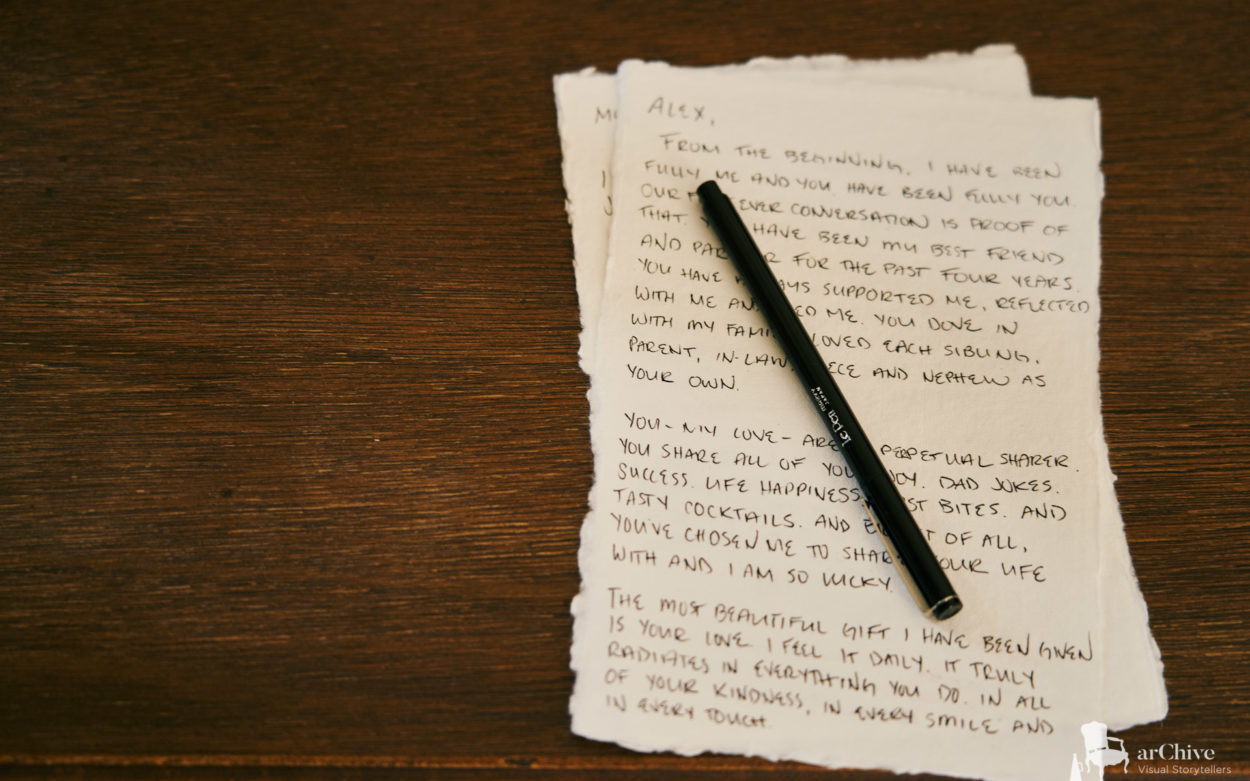 ALEX,
FROM THE BEGINNING, I HAVE BEEN
FULLY ME AND YOU HAVE BEEN FULLY YOU.
OUR EVER CONVERSATION IS PROOF OF
THAT. HAVE BEEN MY BEST FRIEND
AND FOR THE PAST FOUR YEARS.
YOU HAVE SUPPORTED ME, REFLECTED
WITH ME ME. YOU DOVE IN
WITH MY LOVED EACH SIBLING,
PARENT, AND NEPHEW AS
YOUR OWN.
YOU - MY LOVE - ARE PERPETUAL SHARER.
YOU SHARE ALL OF JOY. DAD JOKES.
SUCCESS. LIFE HAPPINESS. BITES. AND
TASTY COCKTAILS. AND OF ALL,
YOU'VE CHOSEN ME TO SHARE YOUR LIFE
WITH AND I AM SO LUCKY.
THE MOST BEAUTIFUL GIFT I HAVE BEEN GIVEN
IS YOUR LOVE. I FEEL IT DAILY. IT TRULY
RADIATES IN EVERYTHING YOU DO. IN ALL
OF YOUR KINDNESS, IN EVERY SMILE AND
IN EVERY TOUCH.
Le Pen
JAPAN
arChive
Visual Storytellers